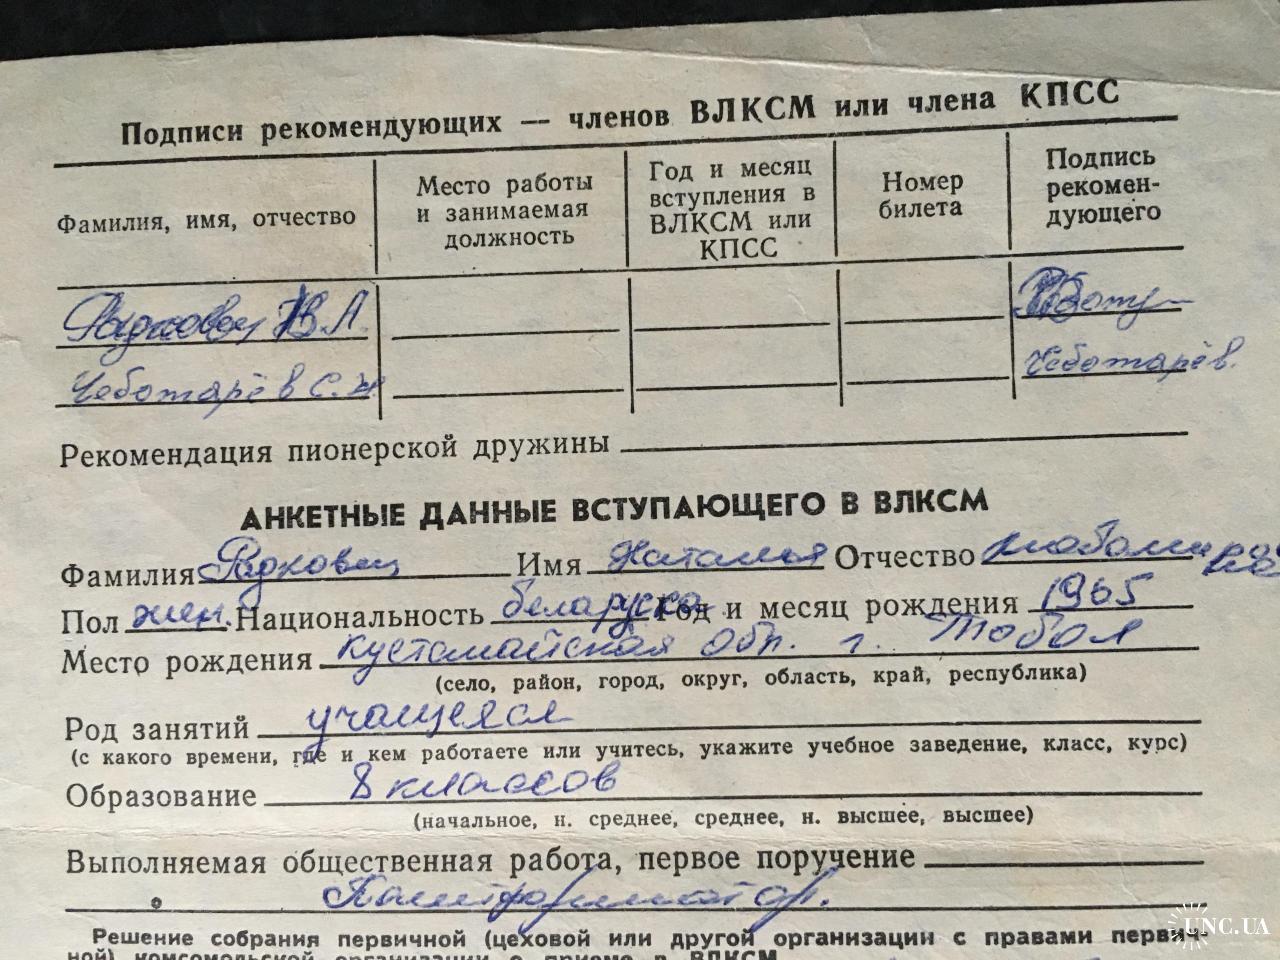 Подписи рекомендующих — членов ВЛКСМ или члена КПСС
Фамилия, имя, отчество
Место работы
и занимаемая
должность
Год и месяц
вступления в
ВЛКСМ или
КПСС
Номер
билета
Подпись
рекомен-
дующего
В.Л.
Чеботарёв С.Н. Чеботарёв.
Рекомендация пионерской дружины
АНКЕТНЫЕ ДАННЫЕ ВСТУПАЮЩЕГО В ВЛКСМ
Фамилия Радковец Имя Наталья Отчество
Пол жен. Национальность беларуска Год и месяц рождения 1965
Место рождения Кустонайская обл. г. Тобол
(село, район, город, округ, область, край, республика)
Род занятий учащияся
(с какого времени, где и кем работаете или учитесь, укажите учебное заведение, класс, курс)
Образование 8 классов
(начальное, н. среднее, среднее, н. высшее, высшее)
Выполняемая общественная работа, первое поручение
Политформатор.
Решение собрания первичной (цеховой или другой организации с правами первич-
ной) комсомольской организации о приеме в ВЛКСМ
UNC.UA